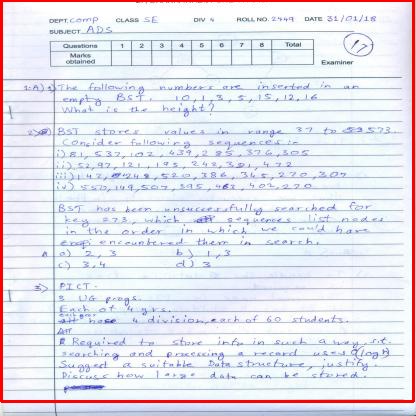 DEPT. Comp CLASS SE DIV 4 ROLL NO. 2449 DATE 31/01/18
SUBJECT ADS
Questions 1 2 3 4 5 6 7 8 Total
Marks obtained
17
Examiner
1.A) 1) The following numbers are inserted in an
empty BST. 10, 1, 3, 5, 15, 12, 16
What is the height?
2) BST stores values in range 37 to 573.
Consider following sequences:-
i) 81, 537, 102, 439, 285, 376, 305
ii) 52, 97, 121, 195, 242, 381, 472
iii) 142, 248, 520, 386, 345, 270, 307
iv) 550, 149, 507, 395, 463, 402, 270
BST has been unsuccessfully searched for
key 273, which sequences list nodes
in the order in which we could have
encountered them in search.
a) 2, 3 b) 1, 3
c) 3, 4 d) 3
3) PICT.
3 UG progs.
Each of 4 yrs.
each year has 4 division, each of 60 students.
Required to store info in such a way, s.t.
searching and processing a record uses O(log n)
Suggest a suitable Data structure, justify.
Discuss how large data can be stored.